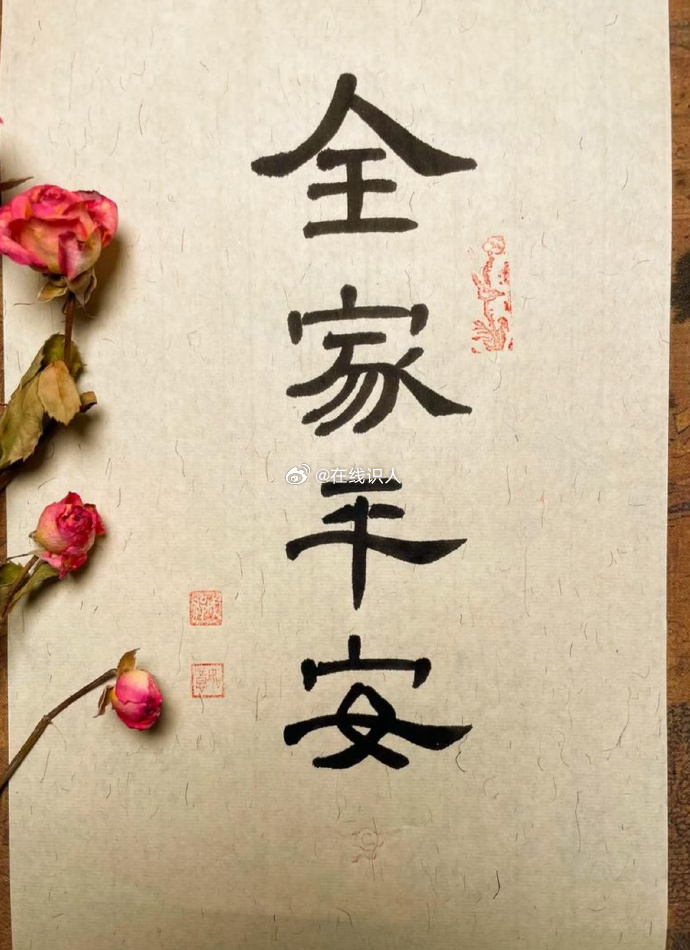 全家平安
@在线识人